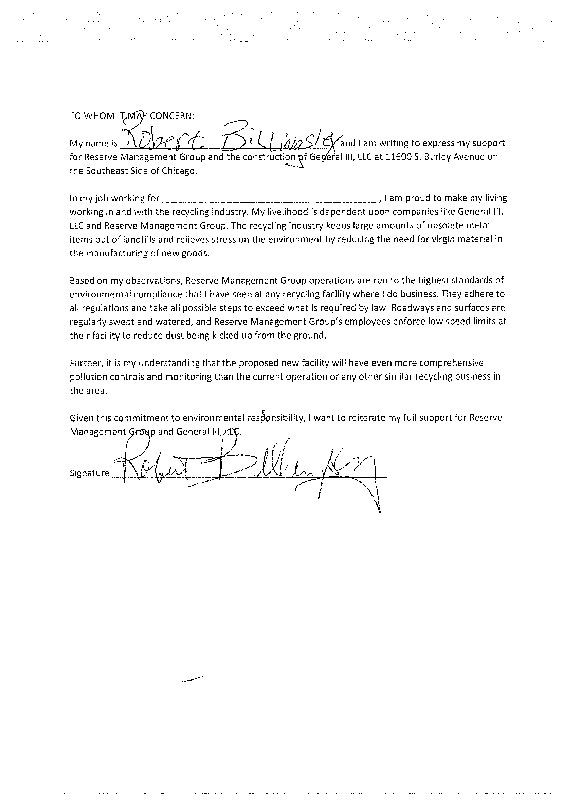 TO WHOM IT MAY CONCERN:
My name is Robert Billingsley and I am writing to express my support
for Reserve Management Group and the construction of General III, LLC at 11600 S. Burley Avenue on
the Southeast Side of Chicago.
In my job working for ________________________________, I am proud to make my living
working in and with the recycling industry. My livelihood is dependent upon companies like General III,
LLC and Reserve Management Group. The recycling industry keeps large amounts of resalable metal
items out of landfills and relieves stress on the environment by reducing the need for virgin material in
the manufacturing of new goods.
Based on my observations, Reserve Management Group operations are run to the highest standards of
environmental compliance that I have seen at any recycling facility where I do business. They adhere to
all regulations and take all possible steps to exceed what is required by law. Roadways and surfaces are
regularly swept and watered, and Reserve Management Group's employees enforce low speed limits at
their facility to reduce dust being kicked up from the ground.
Further, it is my understanding that the proposed new facility will have even more comprehensive
pollution controls and monitoring than the current operation or any other similar recycling business in
the area.
Given this commitment to environmental responsibility, I want to reiterate my full support for Reserve
Management Group and General III, LLC.
Signature Robert Billingsley